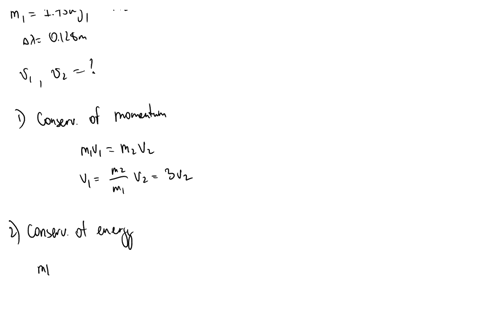 Δλ= 0.128m
v₁ , v₂ = ?
1) Conserv. of momentum
m₁v₁ = m₂v₂
v₁ = m₂/m₁ v₂ = 3v₂
2) Conserv. of energy
m1